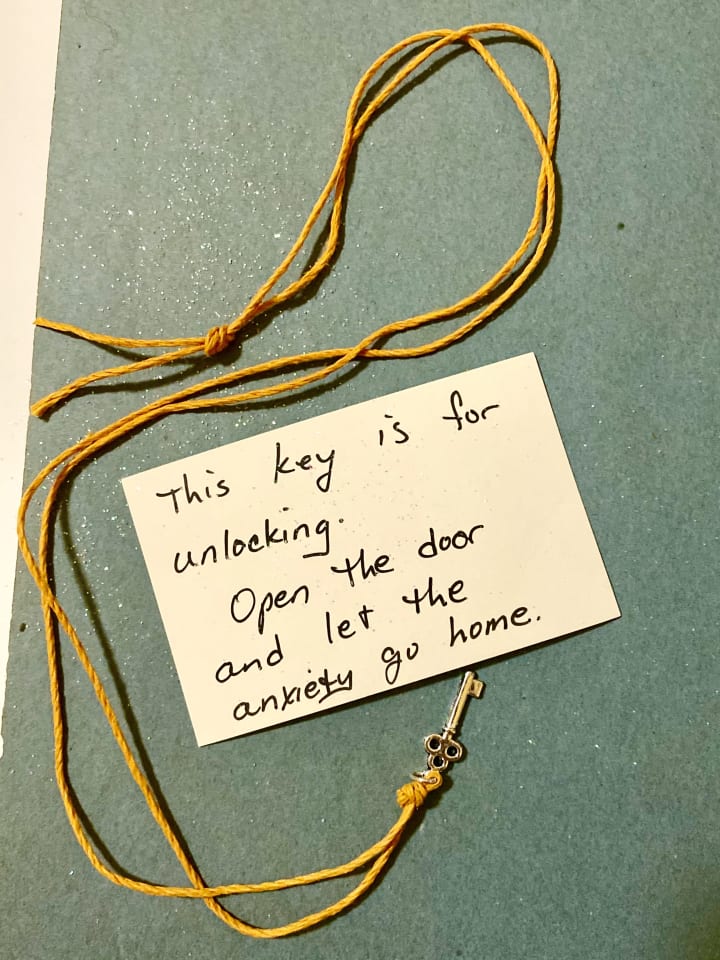 This key is for
unlocking.
Open the door
and let the
anxiety go home.